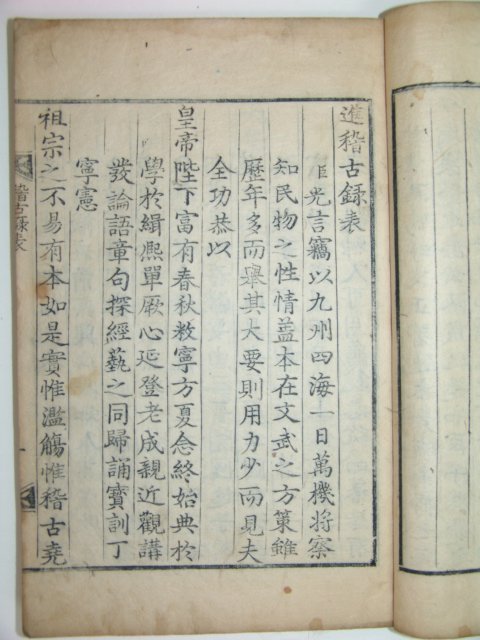 進稽古錄表
臣光言竊以九州四海一日萬機將察
知民物之性情盖本在文武之方策雖
歷年多而舉其大要則用力少而見夫
全功恭以
皇帝陛下富有春秋敎寧方夏念終始典於
學於緝熙單厥心延登老成親近觀講
發論語章句探經藝之同歸誦寶訓丁
寧憲
祖宗之不易有本如是實惟濫觴惟稽古堯
稽古錄表